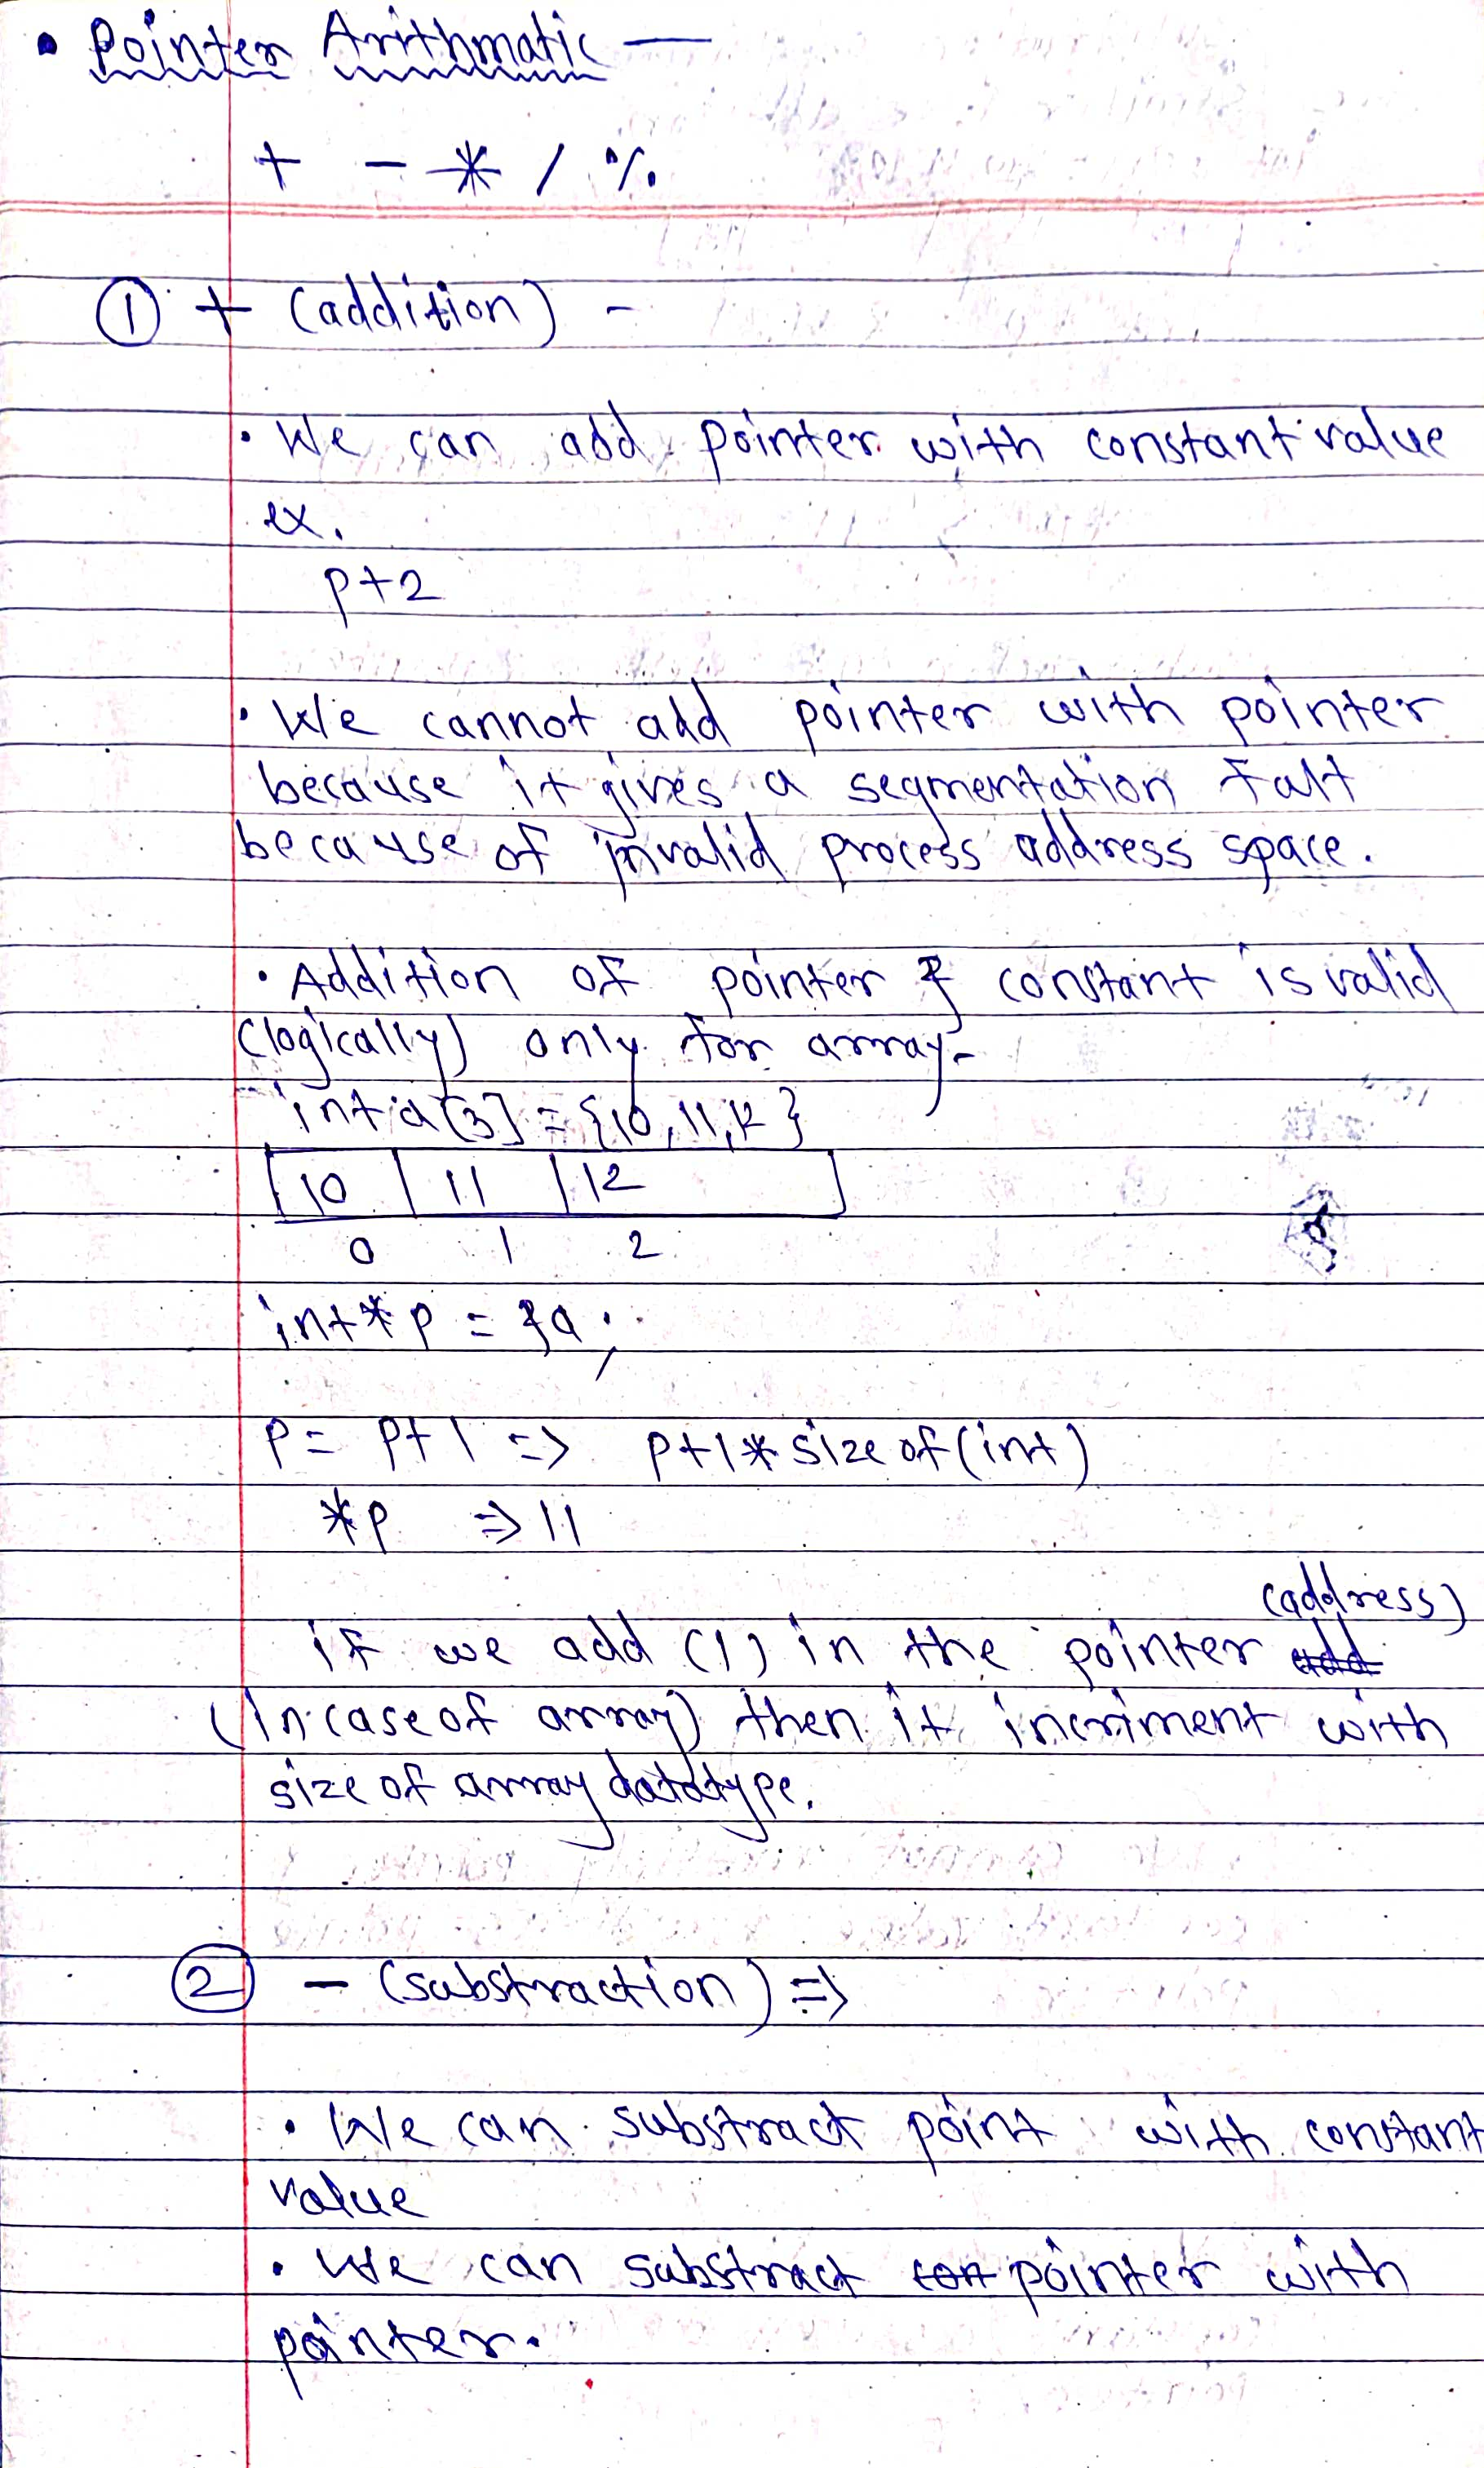 • Pointer Arithmatic —
+ - * / %
① + (addition) -
• We can add pointer with constant value
ex.
p+2
• We cannot add pointer with pointer
because it gives a segmentation falt
because of invalid process address space.
• Addition of pointer & constant is valid
(logically) only for array-
int a[3] = {10, 11, 12}
10 | 11 | 12
0 1 2
int* p = &a;
p = p+1 => p+1* size of (int)
*p => 11
(address)
if we add (1) in the pointer add
(In case of array) then it incriment with
size of array datatype.
② - (substraction) =>
• We can substract point with constant
value
• We can substract con pointer with
pointer.